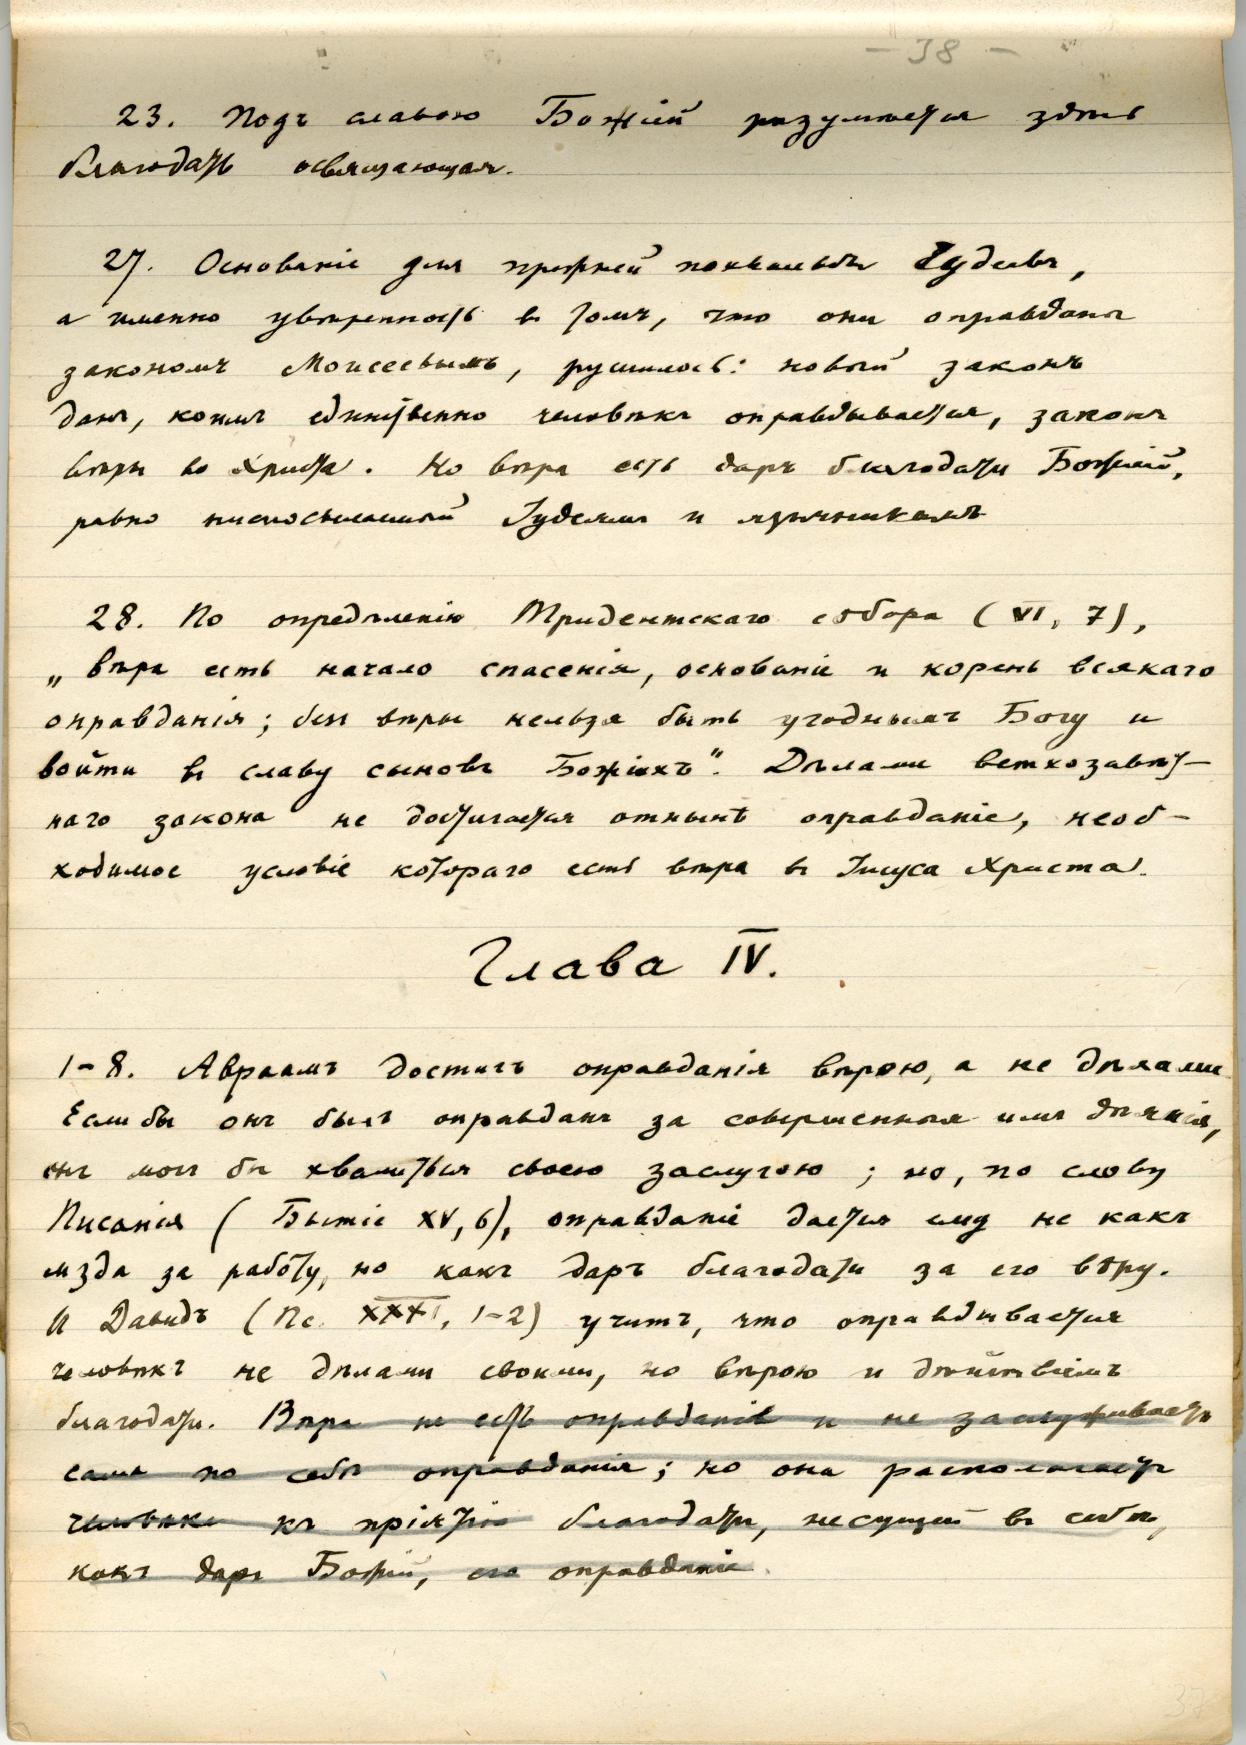 – 38 –
23. Подъ славою Божіей разумѣется здѣсь
благодать освящающая.
27. Основаніе для прежней похвальбы Іудеевъ,
а именно увѣренность въ томъ, что они оправданы
закономъ Моисеевымъ, рушилось: новый законъ
данъ, коимъ единственно человѣкъ оправдывается, законъ
вѣры во Христа. Но вѣра есть даръ благодати Божіей,
равно ниспосылаемый Іудеямъ и язычникамъ
28. По опредѣленію Тридентскаго собора (VI, 7),
„вѣра есть начало спасенія, основаніе и корень всякаго
оправданія; безъ вѣры нельзя быть угоднымъ Богу и
войти въ славу сыновъ Божіихъ“. Дѣлами ветхозавѣт–
наго закона не достигается отнынѣ оправданіе, необ–
ходимое условіе котораго есть вѣра въ Іисуса Христа.
Глава IV.
1–8. Авраамъ достигъ оправданія вѣрою, а не дѣлами.
Если бы онъ былъ оправданъ за совершенныя имъ дѣянія,
онъ могъ бы хвалиться своею заслугою; но, по слову
Писанія (Бытіе XV, 6), оправданіе дается ему не какъ
мзда за работу, но какъ даръ благодати за его вѣру.
И Давидъ (Пс. XXXI, 1–2) учитъ, что оправдывается
человѣкъ не дѣлами своими, но вѣрою и дѣйствіемъ
благодати. Вѣра не есть оправданіе и не заслуживаетъ
сама по себѣ оправданія; но она располагаетъ
человѣка къ пріятію благодати, несущей въ себѣ,
какъ даръ Божій, его оправданіе.
37